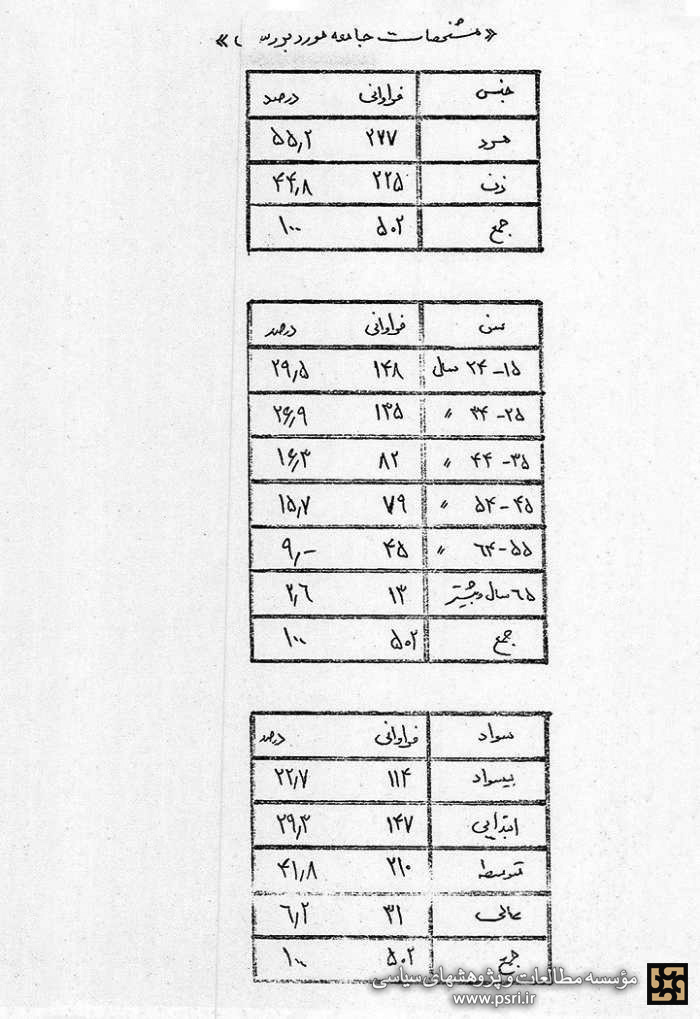 «مشخصات جامعه مورد بررسی»
جنس فراوانی درصد
مرد ۲۷۷ ۵۵٫۲
زن ۲۲۵ ۴۴٫۸
جمع ۵۰۲ ۱۰۰
سن فراوانی درصد
۱۵-۲۴ سال ۱۴۸ ۲۹٫۵
۲۵-۳۴ " ۱۳۵ ۲۶٫۹
۳۵-۴۴ " ۸۲ ۱۶٫۳
۴۵-۵۴ " ۷۹ ۱۵٫۷
۵۵-۶۴ " ۴۵ ۹٫-
۶۵ سال و بیشتر ۱۳ ۲٫۶
جمع ۵۰۲ ۱۰۰
سواد فراوانی درصد
بیسواد ۱۱۴ ۲۲٫۷
ابتدایی ۱۴۷ ۲۹٫۳
متوسطه ۲۱۰ ۴۱٫۸
عالی ۳۱ ۶٫۲
جمع ۵۰۲ ۱۰۰
مؤسسه مطالعات و پژوهشهای سیاسی
www.psri.ir